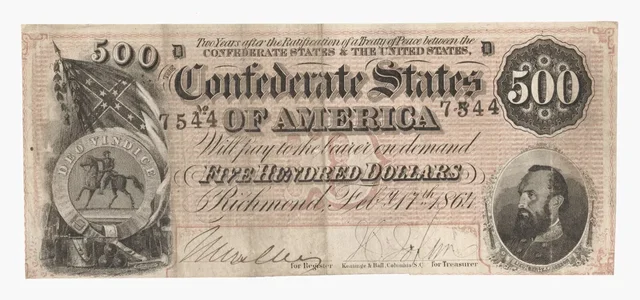 Two Years after the Ratification of a Treaty of Peace between the
500 D CONFEDERATE STATES & THE UNITED STATES, D
Confederate States
500
No 7544 7544
OF AMERICA
DEO VINDICE
Will pay to the bearer on demand
FIVE HUNDRED DOLLARS
Richmond, Feby. 17th 1864
for Register Keatinge & Ball, Columbia, S.C. for Treasurer